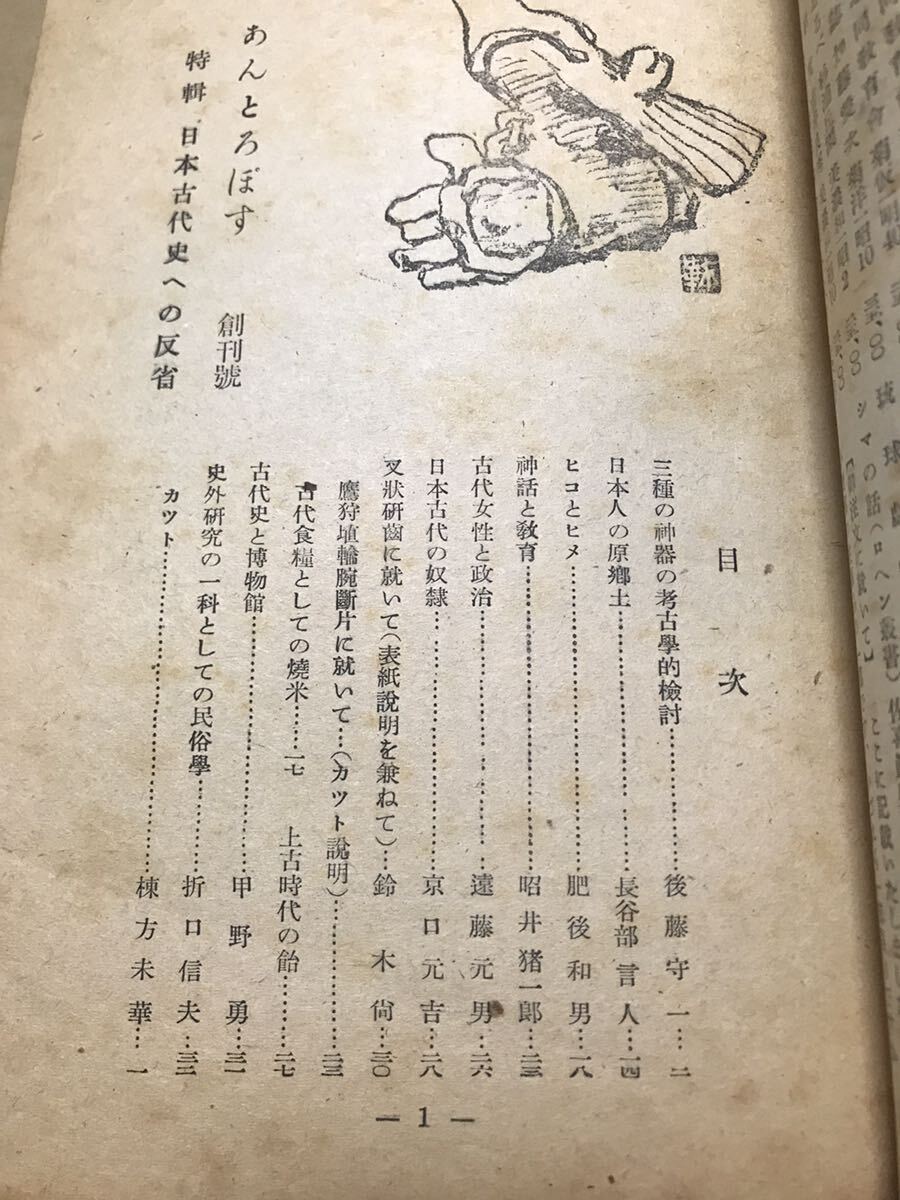 あんとろぽす
創刊號
特輯 日本古代史への反省
目次
三種の神器の考古學的檢討…後藤守一…二
日本人の原鄕土…長谷部言人…一四
ヒコとヒメ…肥後和男…一八
神話と敎育…昭井猪一郞…二三
古代女性と政治…遠藤元男…二六
日本古代の奴隸…京口元吉…二八
叉狀硏齒に就いて(表紙說明を兼ねて)…鈴木尙…三〇
鷹狩埴輪腕斷片に就いて…(カツト說明)…二三
古代食糧としての燒米…一七
上古時代の飴…二七
古代史と博物館…甲野勇…三一
史外硏究の一科としての民俗學…折口信夫…三二
カツト…棟方未華…一
— 1 —
琉球
シマの話(ロヘン叢書)